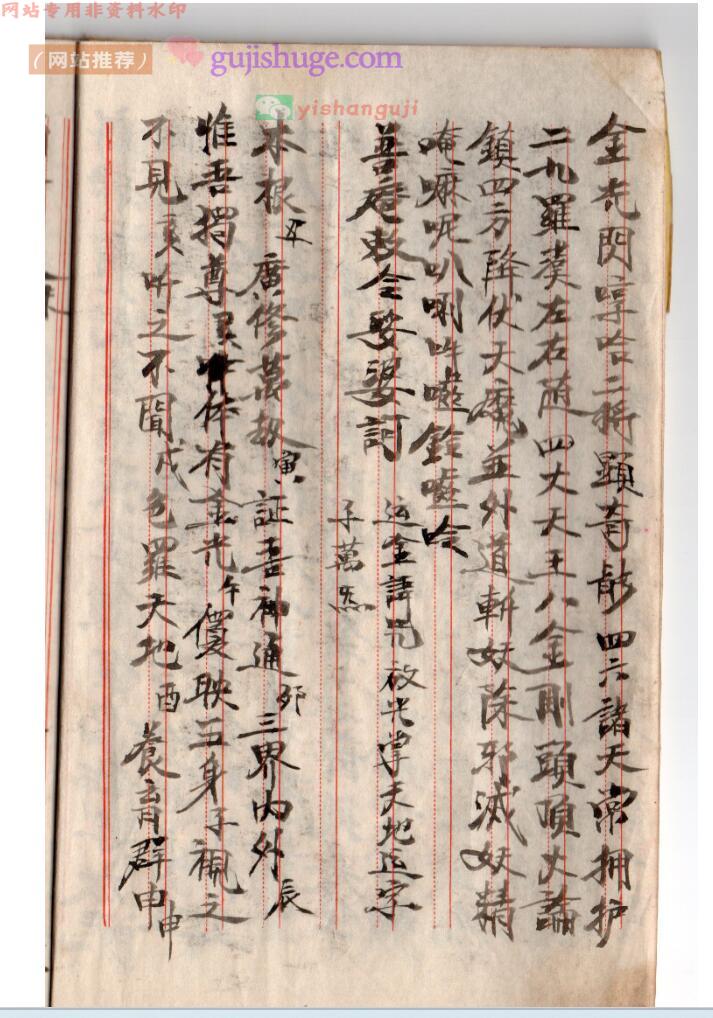 网站专用非资料水印
（网站推荐）
gujishuge.com
yishanguji
金光閃哼哈二将顕苛能四六諸天常拥护
二九羅漢左右随四大天王八金刚頭頂火論
鎮四方降伏天魔並外道斬妖除邪滅妖精
唵嘛呢叭唎吽
普庵敕令娑婆訶
运金諱咒放光掌天地运宗
子萬炁
本根丑廣修萬扱寅証吾神通卯三界内外辰
惟吾獨尊巳体有金光午優映五身子視之
不見亥听之不聞戌包羅天地酉養育群申申